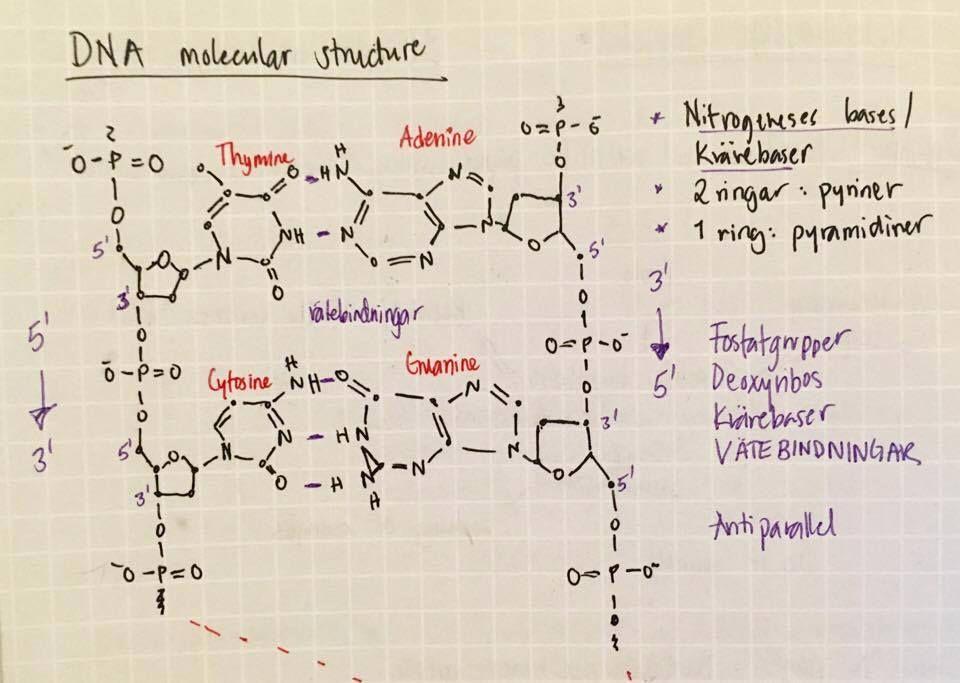 DNA molecular structure
* Nitrogeneses bases /
Kvävebaser
* 2 ringar : pyriner
* 1 ring : pyramidiner
Thymine
Adenine
⁻O-P=O
O
5'
O
3'
N
NH
O
O
H
H N
N
N
N
N
O=P-O⁻
O
3'
O
5'
O
vätebindningar
5'
3'
3'
5'
O
⁻O-P=O
O
5'
O
3'
O
⁻O-P=O
Cytosine
Guanine
H
N H
N
N
O
O
H N
H
N
H
N
N
N
O=P-O⁻
O
3'
O
5'
O
O=P-O⁻
O
Fosfatgrupper
Deoxyribos
Kvävebaser
VÄTEBINDNINGAR
Antiparallel